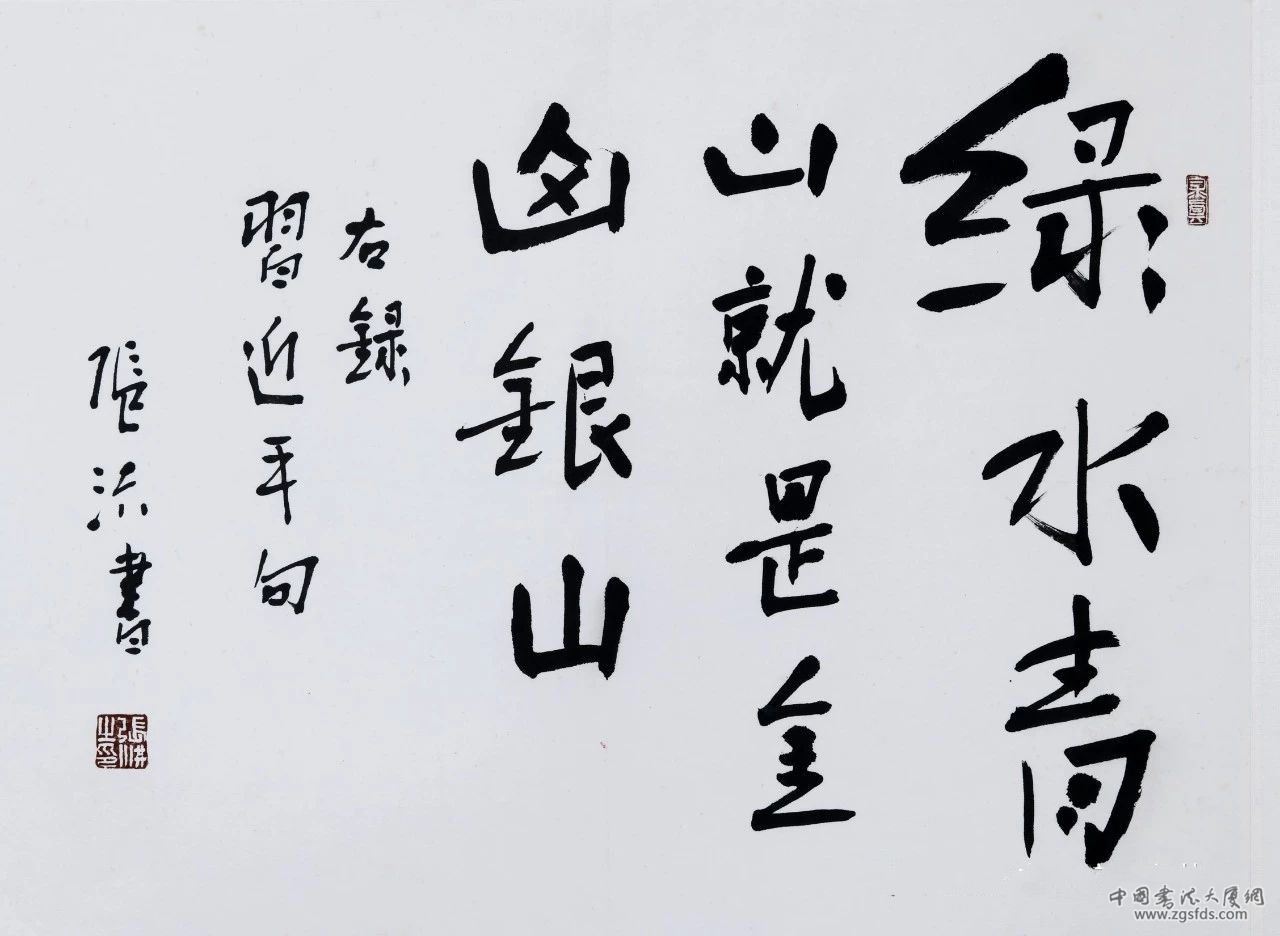 绿水青
山就是金
山銀山
右録
習近平句
張書
中國書法大廈網
www.zgsfds.com